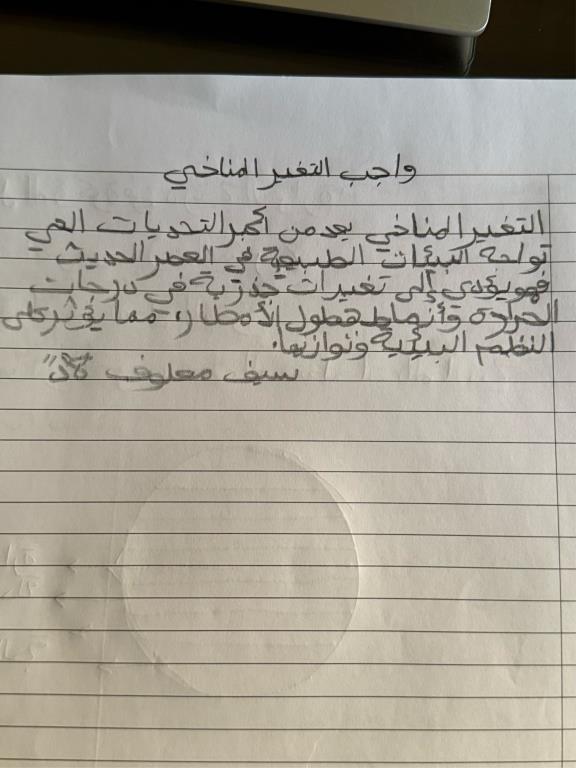 واجب التغير المناخي
التغير المناخي يعد من أكبر التحديات التي
تواجه البيئات الطبيعية في العصر الحديث -
فهو يؤدي إلى تغيرات جذرية في درجات
الحرارة وأنماط هطول الأمطار، مما يؤثر على
النظم البيئية وتوازنها.
سيف معلوف